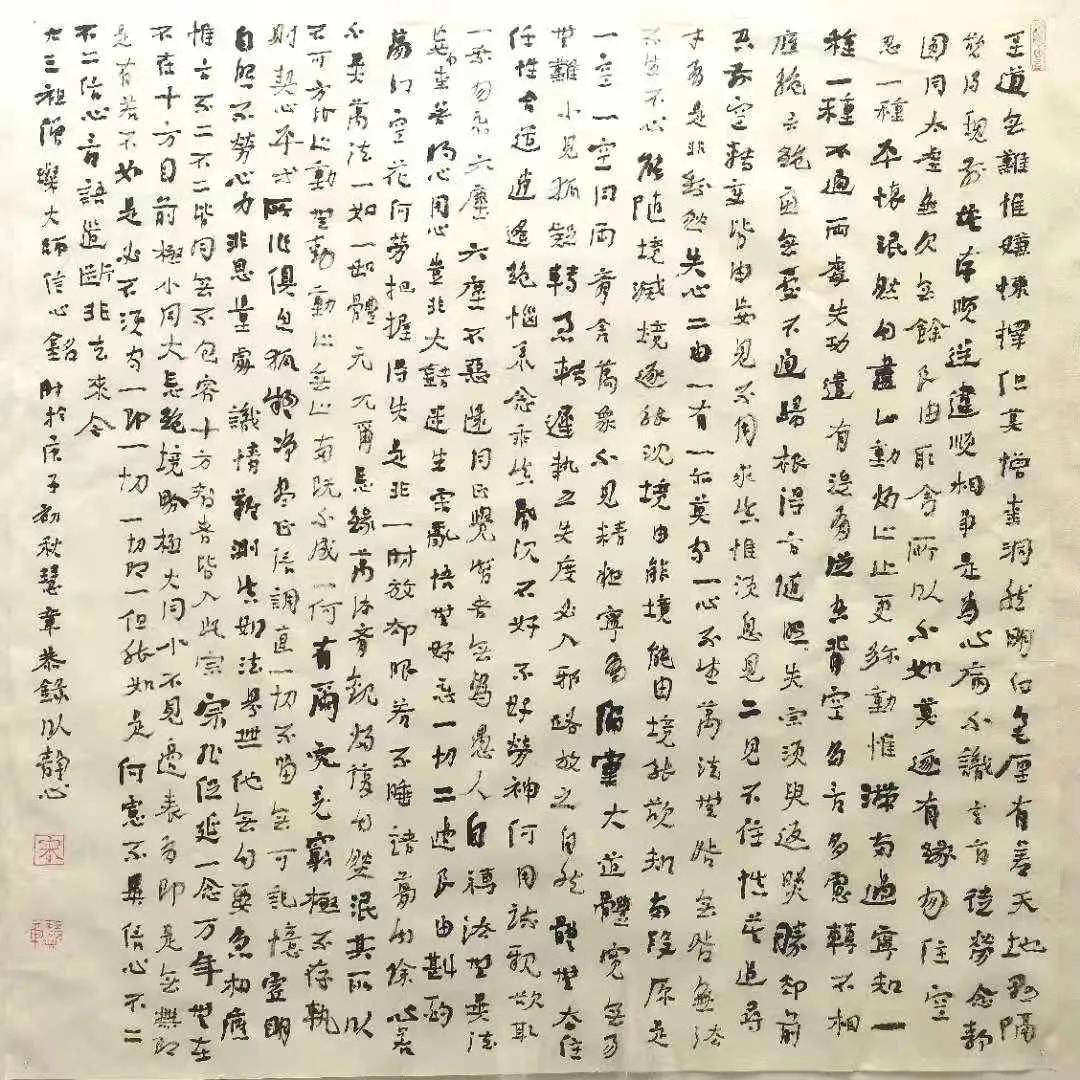 至道無難惟嫌揀擇但莫憎愛洞然明白毫厘有差天地懸隔
欲得現前莫存順逆違順相爭是為心病不識玄旨徒勞念静
圓同太虛無欠無餘良由取舍所以不如莫逐有緣勿住空
忍一種平懷泯然自盡止動歸止止更弥動惟滯两邊寧知一
種一種不通两處失功遣有沒有從空背空多言多慮轉不相
應絶言絶慮無處不通歸根得旨隨照失宗須臾返照勝却前
空前空轉變皆由妄見不用求真惟須息見二見不住慎莫追尋
才有是非紛然失心二由一有一亦莫守一心不生萬法無咎無咎無法
不生不心能隨境滅境逐能沉境由能境能由境能欲知两段原是
一空一空同两齊含萬象不見精粗寧有偏黨大道體寬無易
無難小見狐疑轉急轉遲執之失度必入邪路放之自然體無去住
任性合道逍遥絶惱系念乖真昏沉不好不好勞神何用疏親欲取
一乘勿惡六塵六塵不惡還同正覺智者無為愚人自縛法無異法
妄生愛著將心用心豈非大錯迷生寂亂悟無好惡一切二邊良由斟酌
夢幻空花何勞把握得失是非一時放却眼若不睡諸夢自除心若
不異萬法一如一如體元兀爾忘緣萬法齊觀歸復自然泯其所以
不可方比止動無動動止無止两既不成一何有爾究竟窮極不存軌
則契心平等所作俱息狐疑净盡正信調直一切不留無可記憶虛明
自照不勞心力非思量處識情難測真如法界無他無自要急相應
惟言不二不二皆同無不包容十方智者皆入此宗宗非促延一念万年無在
不在十方目前極小同大忘絶境界極大同小不見邊表有即是無無即
是有若不如是必不須守一即一切一切即一但能如是何慮不畢信心不二
不二信心言語道斷非去來今
右三祖僧璨大師信心銘時於庚子初秋慧章恭錄以靜心